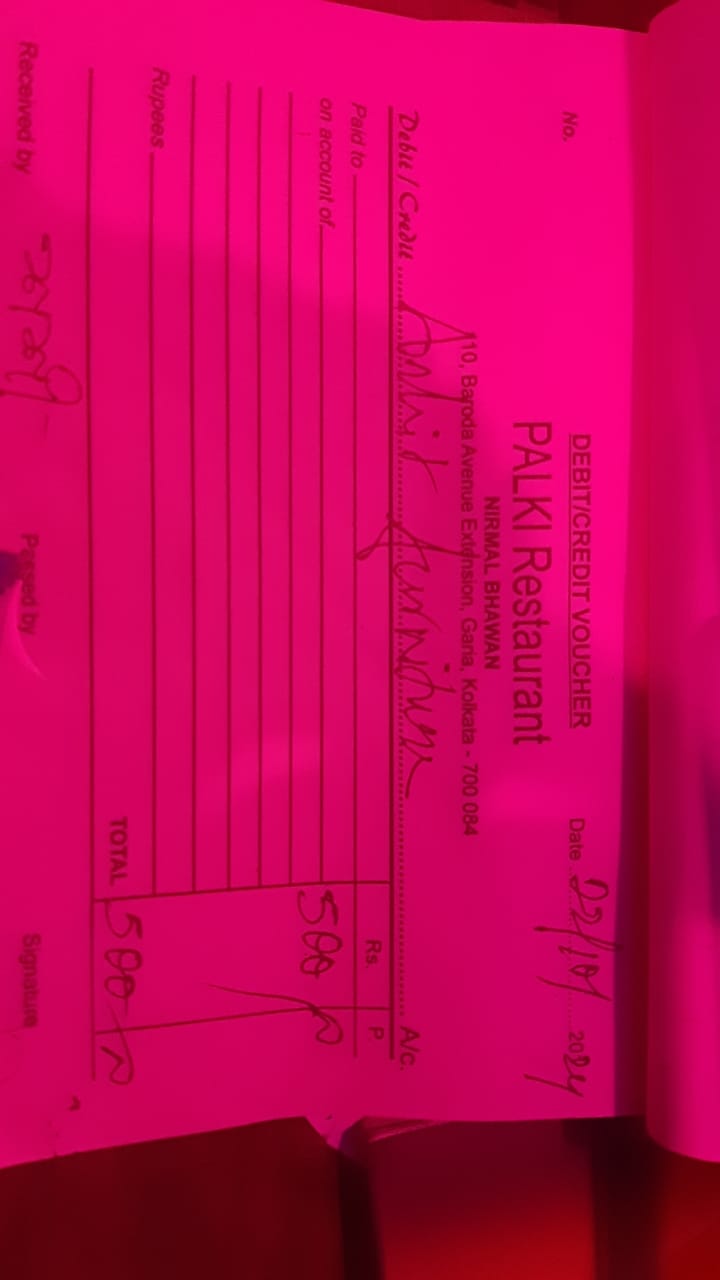 DEBIT/CREDIT VOUCHER
No. Date 22/10/ 2024
PALKI Restaurant
NIRMAL BHAWAN
110, Baroda Avenue Extension, Garia, Kolkata - 700 084
Debit / Credit furniture A/c.
Paid to Rs. P.
on account of 500
Rupees
TOTAL 500
Received by Passed by Signature